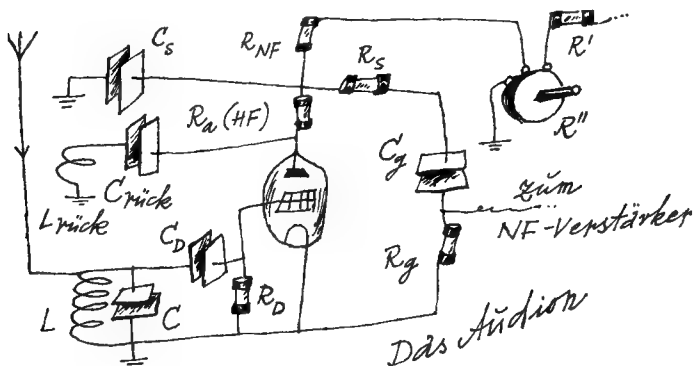 C_s
R_NF
R_s
R'
R''
R_a (HF)
C_g
L_rück
C_rück
zum
NF-Verstärker
C_D
R_D
R_g
L
C
Das Audion